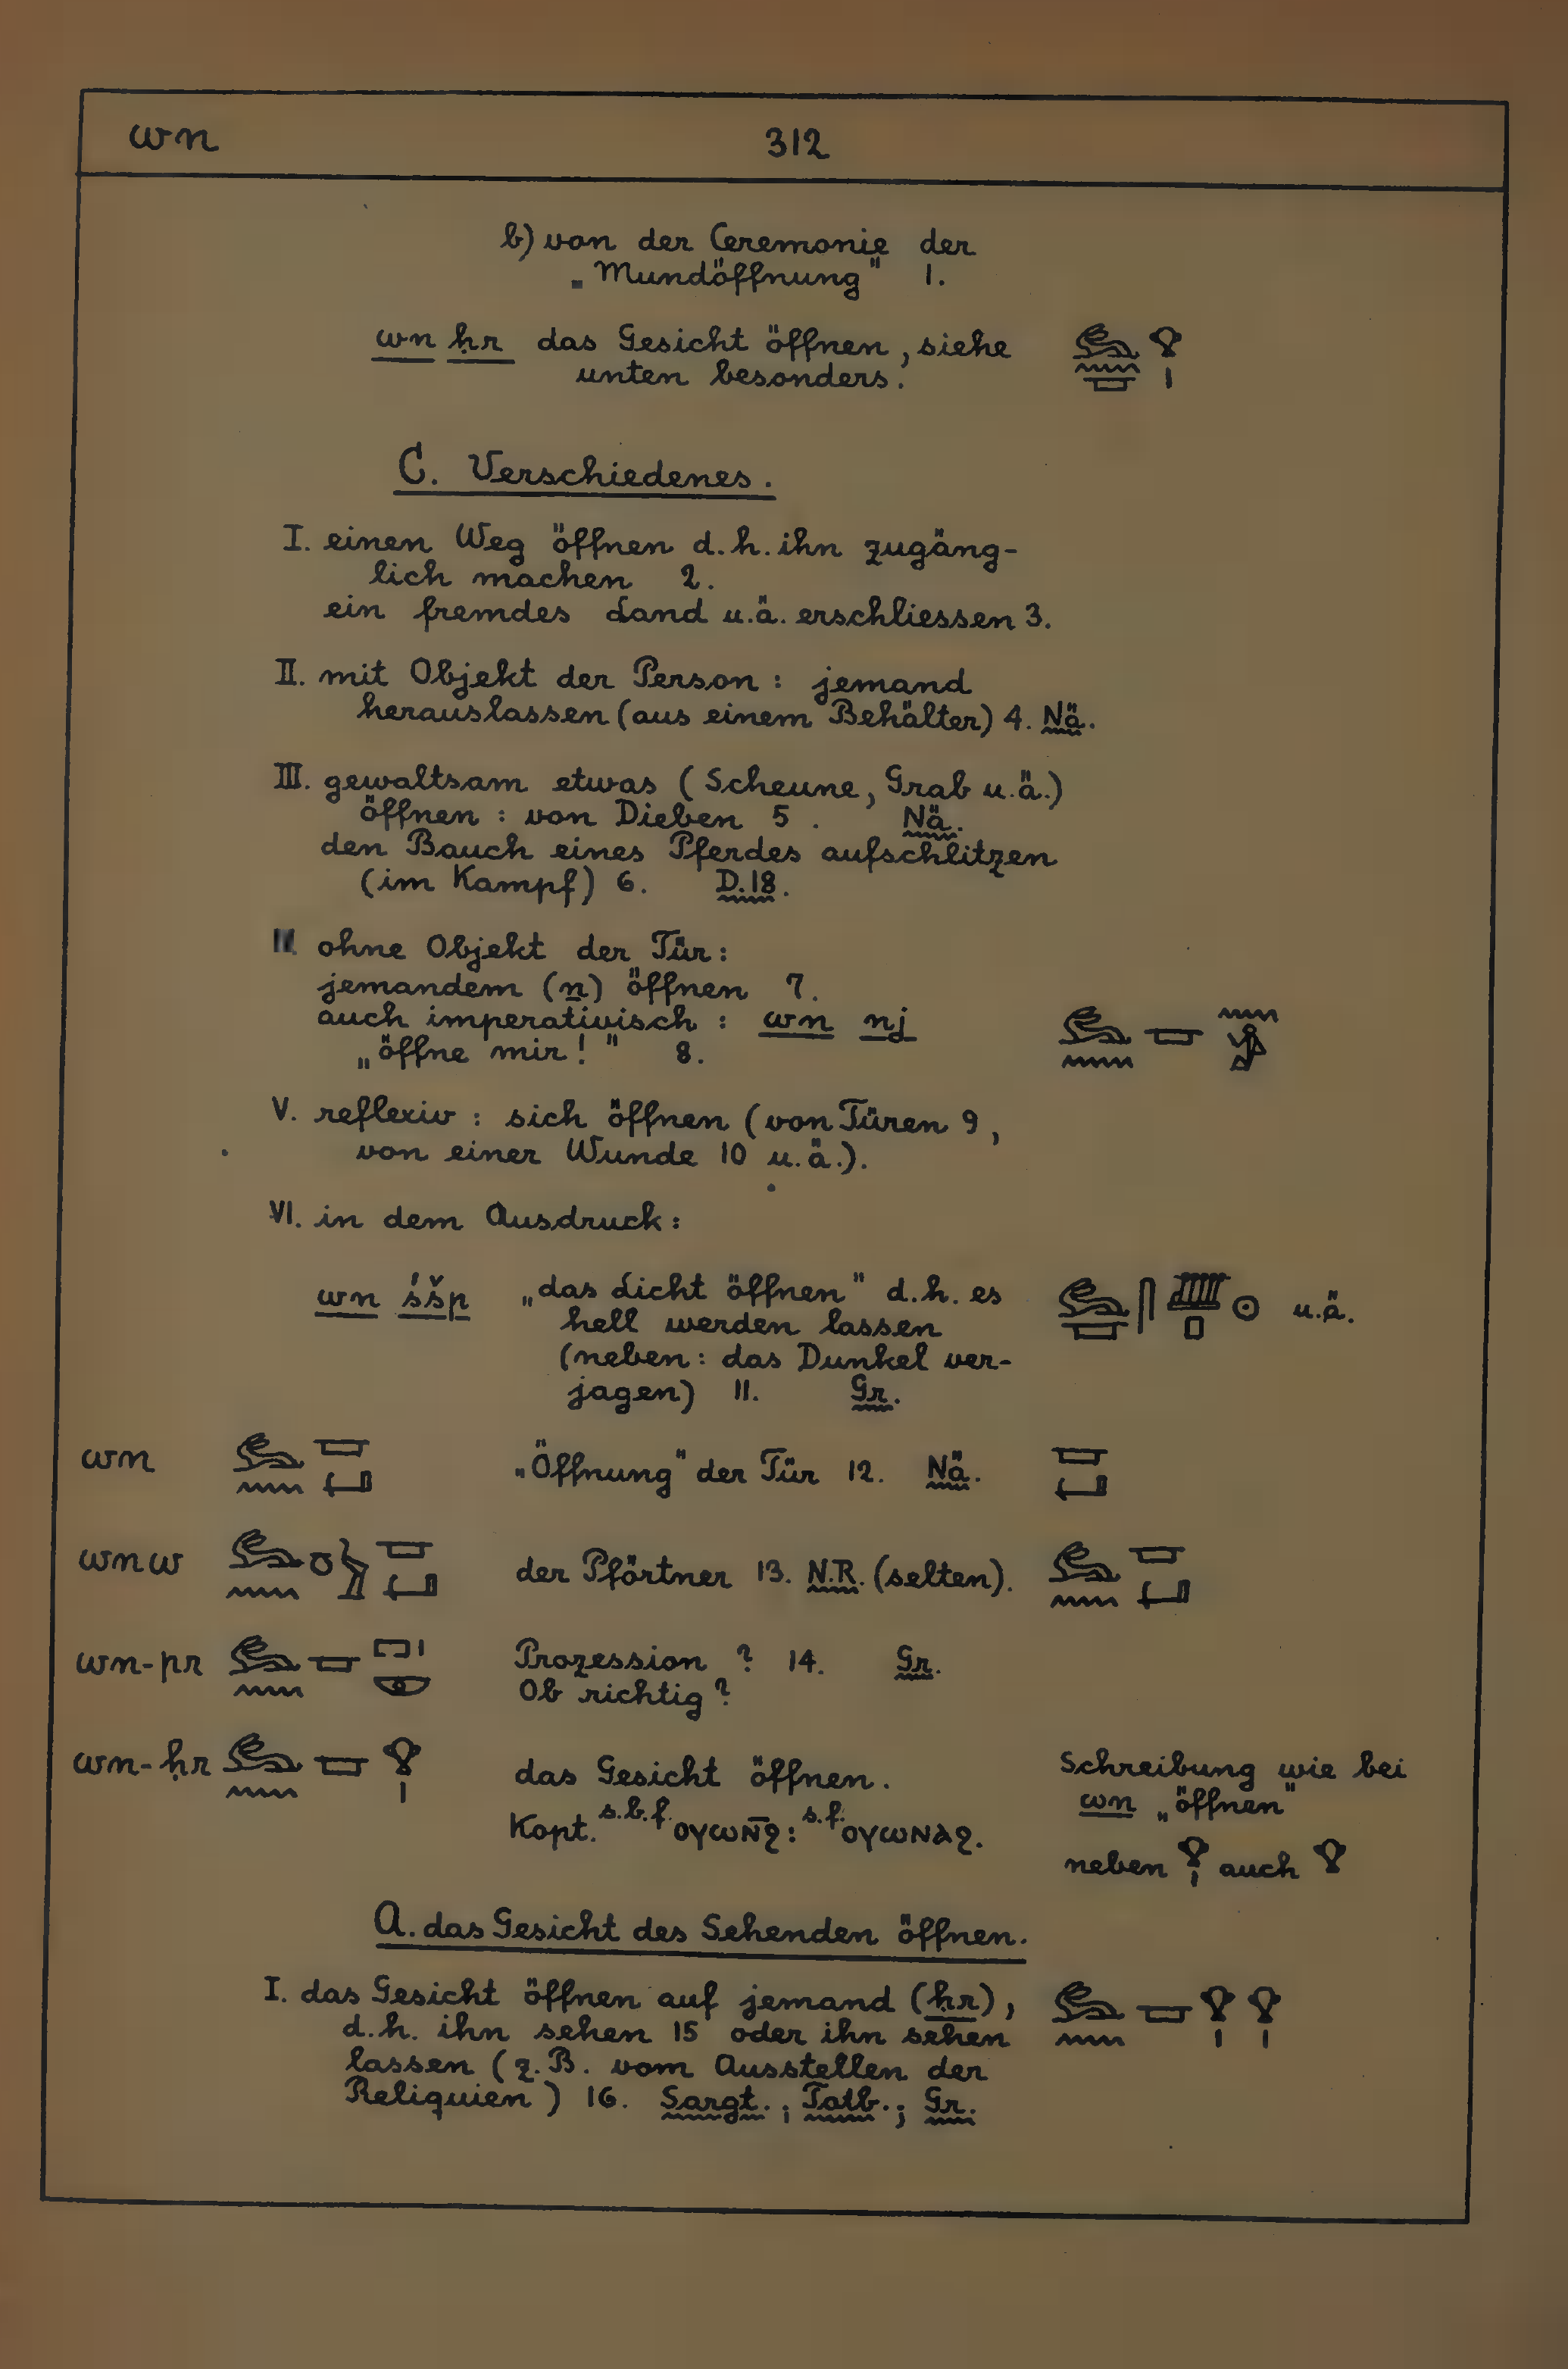 wn 312
b) von der Ceremonie der
„Mundöffnung" 1.
wn ḥr das Gesicht öffnen, siehe
unten besonders.
C. Verschiedenes.
I. einen Weg öffnen d.h. ihn zugäng-
lich machen 2.
ein fremdes Land u.ä. erschliessen 3.
II. mit Objekt der Person: jemand
herauslassen (aus einem Behälter) 4. Nä.
III. gewaltsam etwas (Scheune, Grab u.ä.)
öffnen: von Dieben 5. Nä.
den Bauch eines Pferdes aufschlitzen
(im Kampf) 6. D.18.
IV. ohne Objekt der Tür:
jemandem (n) öffnen 7.
auch imperativisch: wn nj
„öffne mir!" 8.
V. reflexiv: sich öffnen (von Türen 9,
von einer Wunde 10 u.ä.).
VI. in dem Ausdruck:
wn śšp „das Licht öffnen" d.h. es u.ä.
hell werden lassen
(neben: das Dunkel ver-
jagen) 11. Gr.
wn „Öffnung" der Tür 12. Nä.
wnw der Pförtner 13. N.R. (selten).
wn-pr Prozession? 14. Gr.
Ob richtig?
wn-ḥr das Gesicht öffnen. Schreibung wie bei
wn „öffnen"
Kopt. s.b.f. ⲟⲩⲱⲛ̄ϩ: s.f. ⲟⲩⲱⲛⲁϩ.
neben auch
A. das Gesicht des Sehenden öffnen.
I. das Gesicht öffnen auf jemand (ḥr),
d.h. ihn sehen 15 oder ihn sehen
lassen (z.B. vom Ausstellen der
Reliquien) 16. Sargt.; Totb.; Gr.